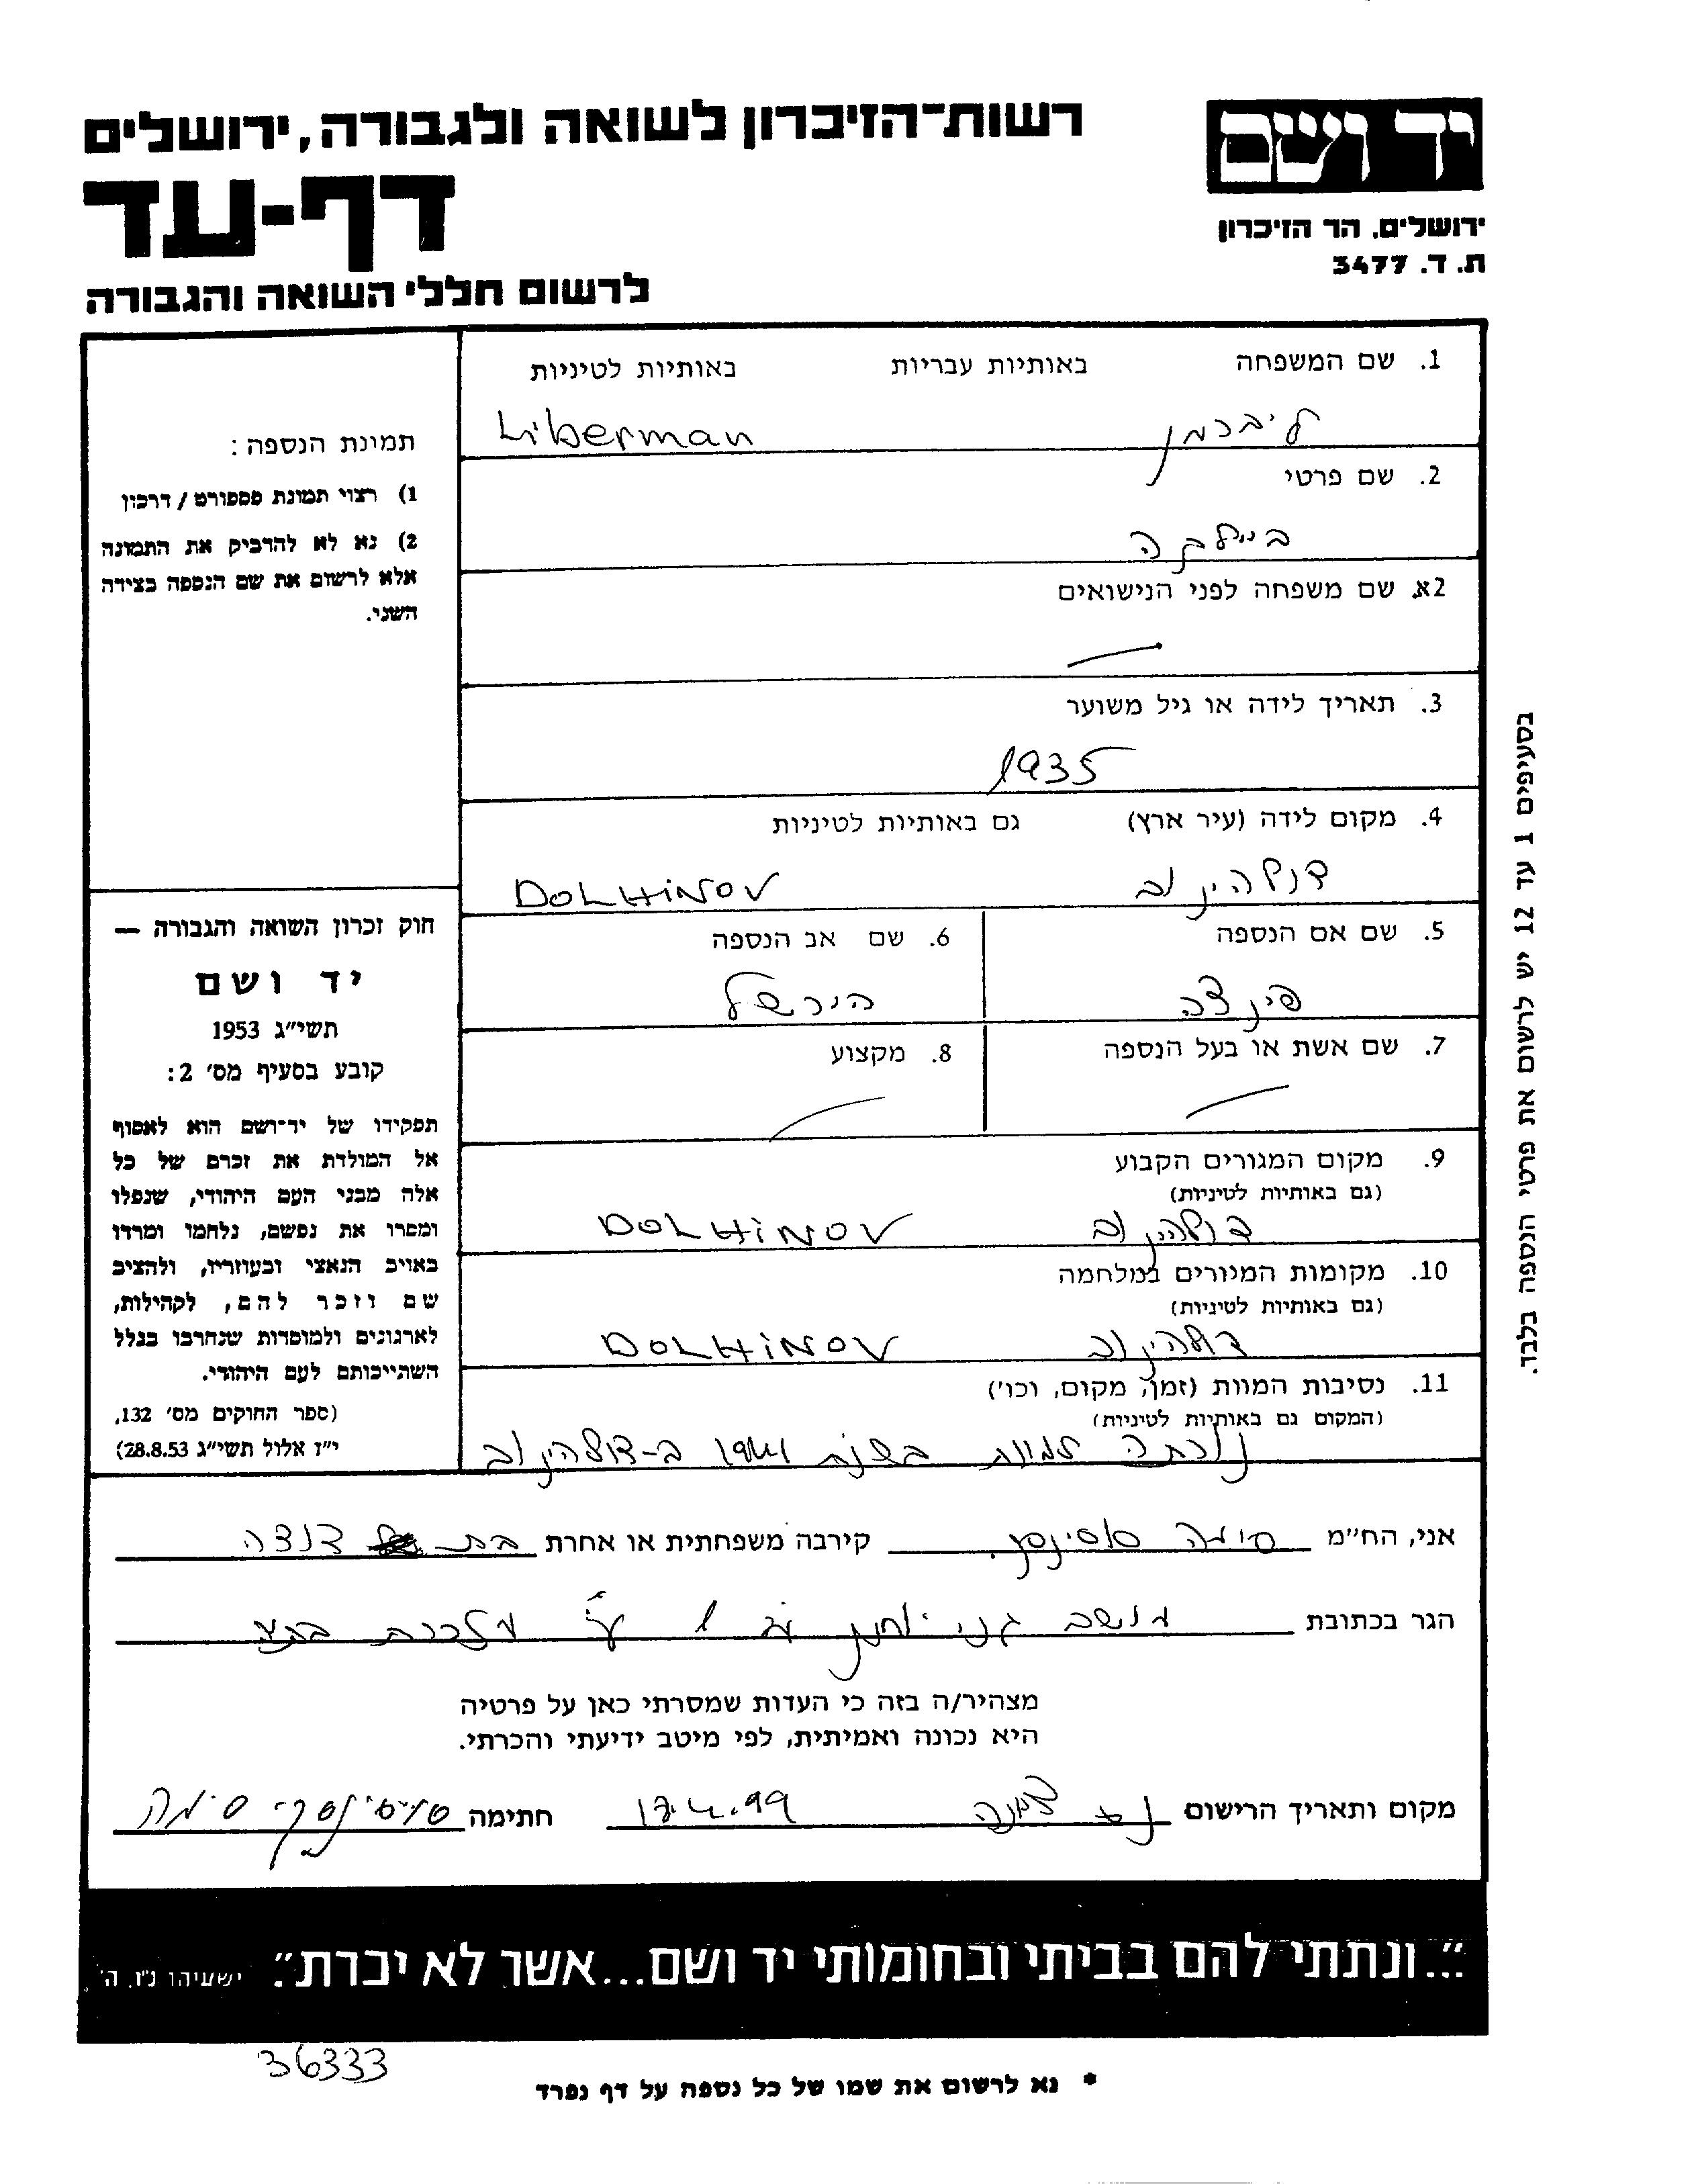 רשות־הזיכרון לשואה ולגבורה, ירושלים
יד ושם
דף-עד
ירושלים. הר הזיכרון
ת. ד. 3477
לרשום חללי השואה והגבורה
1. שם המשפחה באותיות עבריות באותיות לטיניות
ליברמן Liberman
2. שם פרטי
ביילקה
2א. שם משפחה לפני הנישואים
3. תאריך לידה או גיל משוער
1935
4. מקום לידה (עיר ארץ) גם באותיות לטיניות
דולהינוב DOLHINOV
5. שם אם הנספה
6. שם אב הנספה
הירשל
7. שם אשת או בעל הנספה
8. מקצוע
9. מקום המגורים הקבוע
(גם באותיות לטיניות)
דולהינוב DOLHINOV
10. מקומות המגורים במלחמה
(גם באותיות לטיניות)
דולהינוב DOLHINOV
11. נסיבות המוות (זמן, מקום, וכו')
(המקום גם באותיות לטיניות)
נורתה למוות בשנת ב-דולהינוב
תמונת הנספה:
1) רצוי תמונת פספורט / דרכון
2) נא לא להדביק את התמונה
אלא לרשום את שם הנספה בצידה
השני.
חוק זכרון השואה והגבורה —
יד ושם
תשי"ג 1953
קובע בסעיף מס' 2:
תפקידו של יד־ושם הוא לאסוף
אל המולדת את זכרם של כל
אלה מבני העם היהודי, שנפלו
ומסרו את נפשם, נלחמו ומרדו
באויב הנאצי ובעוזריו, ולהציב
שם וזכר להם, לקהילות,
לארגונים ולמוסדות שנחרבו בגלל
השתייכותם לעם היהודי.
(ספר החוקים מס' 132,
י"ז אלול תשי"ג 28.8.53)
בסעיפים 1 עד 12 יש לרשום את פרטי הנספה בלבד.
אני, הח"מ סימה קירבה משפחתית או אחרת בת דודה
הגר בכתובת מושב גני יוחנן
מצהיר/ה בזה כי העדות שמסרתי כאן על פרטיה
היא נכונה ואמיתית, לפי מיטב ידיעתי והכרתי.
מקום ותאריך הרישום נס ציונה 17.4.99 חתימה סימה
"...ונתתי להם בביתי ובחומותי יד ושם...אשר לא יכרת". ישעיהו נ"ו, ה'
36333
* נא לרשום את שמו של כל נספה על דף נפרד